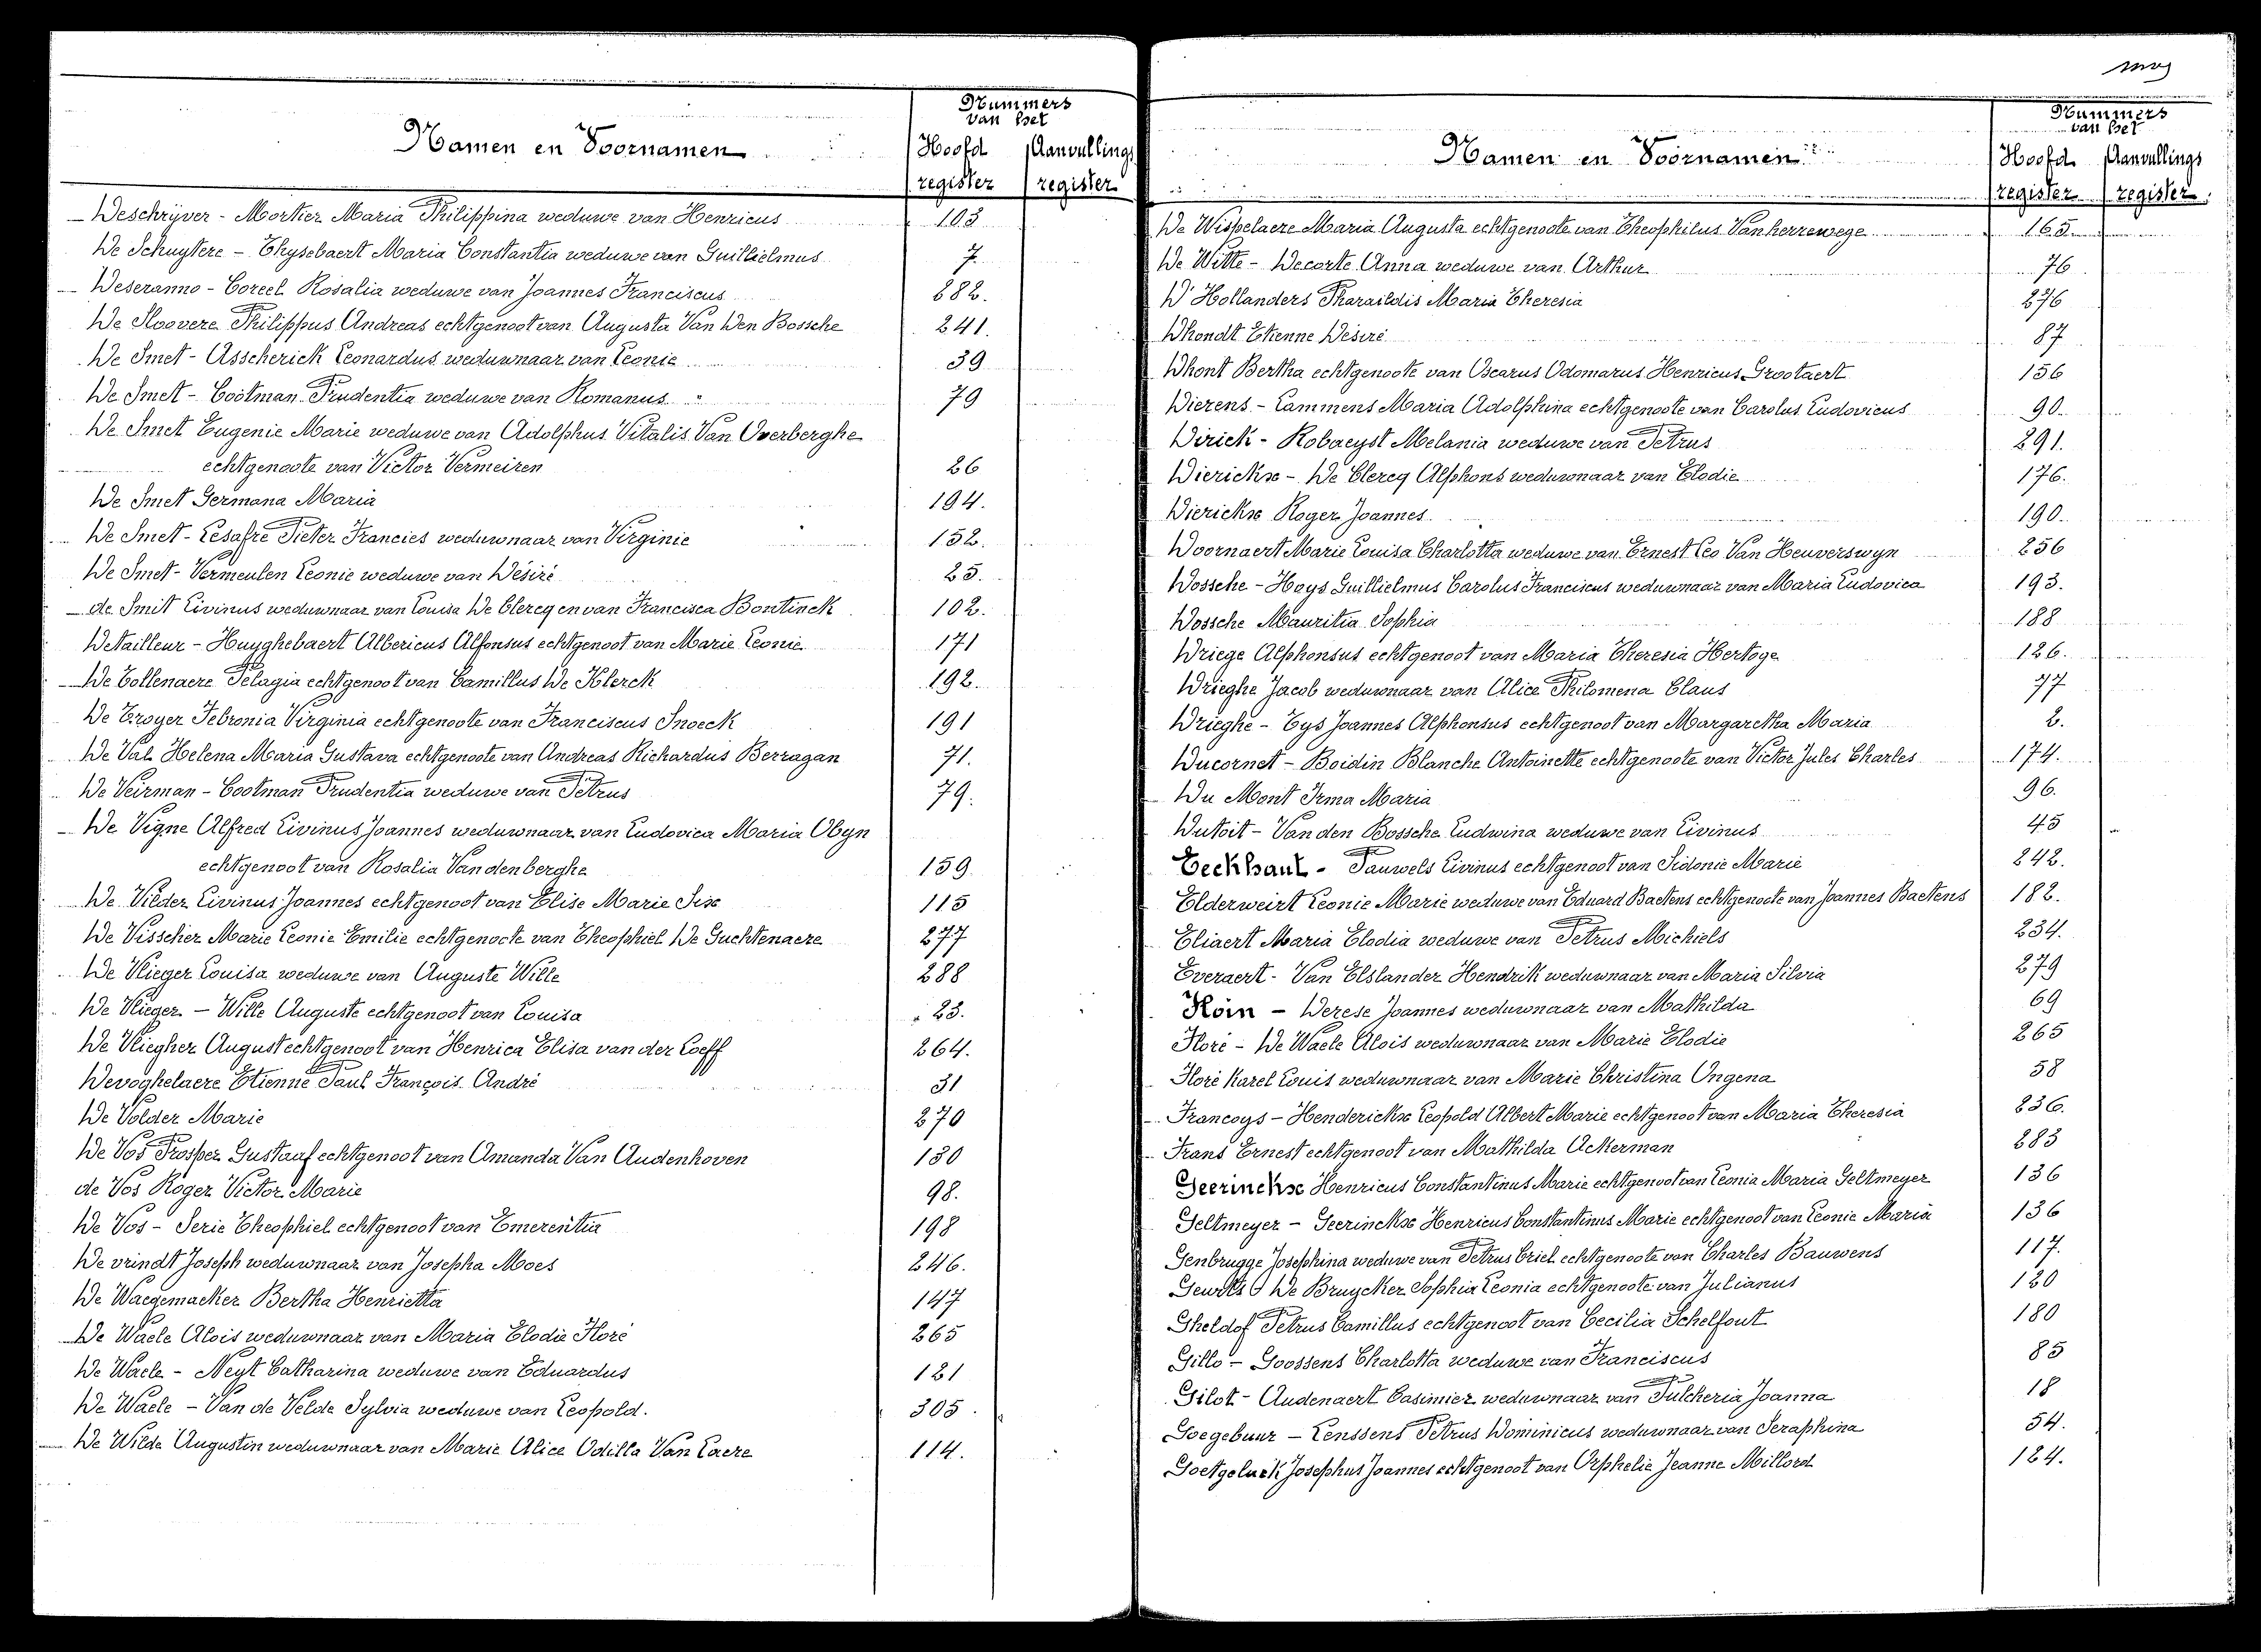 Nummers
van het
Namen en Voornamen
Hoofd Aanvullings
register register
Deschrijver - Mortier Maria Philippina weduwe van Henricus 103
De Schuytere - Thysebaert Maria Constantia weduwe van Guillielmus 7
Deseranno - Coreel Rosalia weduwe van Joannes Franciscus 282.
De Sloovere Philippus Andreas echtgenoot van Augusta Van Den Bossche 241.
De Smet - Asscherick Leonardus weduwnaar van Leonie 39
De Smet - Cootman Prudentia weduwe van Romanus 79
De Smet Eugenie Marie weduwe van Adolphus Vitalis Van Overberghe
echtgenoote van Victor Vermeiren 26
De Smet Germana Maria 194.
De Smet - Lesafre Pieter Francies weduwnaar van Virginie 152.
De Smet - Vermeulen Leonie weduwe van Désiré 25.
de Smit Livinus weduwnaar van Louisa De Clercq en van Francisca Bontinck 102.
Detailleur - Huyghebaert Albericus Alfonsus echtgenoot van Marie Leonie 171
De Tollenaere Pelagia echtgenoot van Camillus De Klerck 192.
De Troyer Febronia Virginia echtgenoote van Franciscus Snoeck 191
De Val Helena Maria Gustava echtgenoote van Andreas Richardus Berragan 71.
De Veirman - Cootman Prudentia weduwe van Petrus 79.
De Vigne Alfred Livinus Joannes weduwnaar van Ludovica Maria Obyn
echtgenoot van Rosalia Vandenberghe 159
De Vilder Livinus Joannes echtgenoot van Elise Marie Six 115
De Visscher Marie Leonie Emilie echtgenoote van Theophiel De Guchtenaere 277
De Vlieger Louisa weduwe van Auguste Wille 288
De Vlieger - Wille Auguste echtgenoot van Louisa 23.
De Vliegher August echtgenoot van Henrica Elisa van der Loeff 264.
Devoghelaere Etienne Paul François André 31
De Volder Marie 270
De Vos Prosper Gustaaf echtgenoot van Amanda Van Audenhoven 130
de Vos Roger Victor Marie 98.
De Vos - Serie Theophiel echtgenoot van Emerentia 198
De vrindt Joseph weduwnaar van Josepha Moes 246.
De Waegemaeker Bertha Henrietta 147
De Waele Alois weduwnaar van Maria Elodie Floré 265
De Waele - Neyt Catharina weduwe van Eduardus 121
De Waele - Van de Velde Sylvia weduwe van Leopold. 305
De Wilde Augustin weduwnaar van Marie Alice Odilla Van Laere 114.
Nummers
van het
Namen en Voornamen
Hoofd Aanvullings
register register
De Wispelaere Maria Augusta echtgenoote van Theophilus Vanherrewege 165
De Witte - Decorte Anna weduwe van Arthur 76
D'Hollanders Pharaildis Maria Theresia 276
Dhondt Etienne Désiré 87
Dhont Bertha echtgenoote van Oscarus Odomarus Henricus Grootaert 156
Dierens - Lammens Maria Adolphina echtgenoote van Carolus Ludovicus 90.
Dirick - Robaeyst Melania weduwe van Petrus 291.
Dierickx - De Clercq Alphons weduwnaar van Elodie 176.
Dierickx Roger Joannes 190.
Doornaert Marie Louisa Charlotta weduwe van Ernest Leo Van Heuverswyn 256
Dossche - Hoys Guillielmus Carolus Franciscus weduwnaar van Maria Ludovica 193.
Dossche Mauritia Sophia 188
Driege Alphonsus echtgenoot van Maria Theresia Hertoge 126.
Drieghe Jacob weduwnaar van Alice Philomena Claus 77
Drieghe - Tys Joannes Alphonsus echtgenoot van Margaretha Maria 2.
Ducornet - Boidin Blanche Antoinette echtgenoote van Victor Jules Charles 174.
Du Mont Irma Maria 96.
Dutoit - Van den Bossche Ludwina weduwe van Livinus 45
Eeckhaut - Pauwels Livinus echtgenoot van Sidonie Marie 242.
Elderweirt Leonie Marie weduwe van Eduard Baetens echtgenoote van Joannes Baetens 182.
Eliaert Maria Elodia weduwe van Petrus Michiels 234.
Everaert - Van Elslander Hendrik weduwnaar van Maria Silvia 279
Floin - Derese Joannes weduwnaar van Mathilda 69
Floré - De Waele Alois weduwnaar van Marie Elodie 265
Floré Karel Louis weduwnaar van Marie Christina Ongena 58
Francoys - Henderickx Leopold Albert Marie echtgenoot van Maria Theresia 236.
Frans Ernest echtgenoot van Mathilda Ackerman 283
Geerinckx Henricus Constantinus Marie echtgenoot van Leonia Maria Geltmeyer 136
Geltmeyer - Geerinckx Henricus Constantinus Marie echtgenoot van Leonie Maria 136
Genbrugge Josephina weduwe van Petrus Criel echtgenoote van Charles Bauwens 117.
Geurts De Bruycker Sophia Leonia echtgenoote van Julianus 120
Gheldof Petrus Camillus echtgenoot van Cecilia Schelfout 180
Gillo - Goossens Charlotta weduwe van Franciscus 85
Gilot - Audenaert Casimier weduwnaar van Pulcheria Joanna 18
Goegebuur - Lenssens Petrus Dominicus weduwnaar van Seraphina 54.
Goetgeluck Josephus Joannes echtgenoot van Orphelie Jeanne Millord 124.